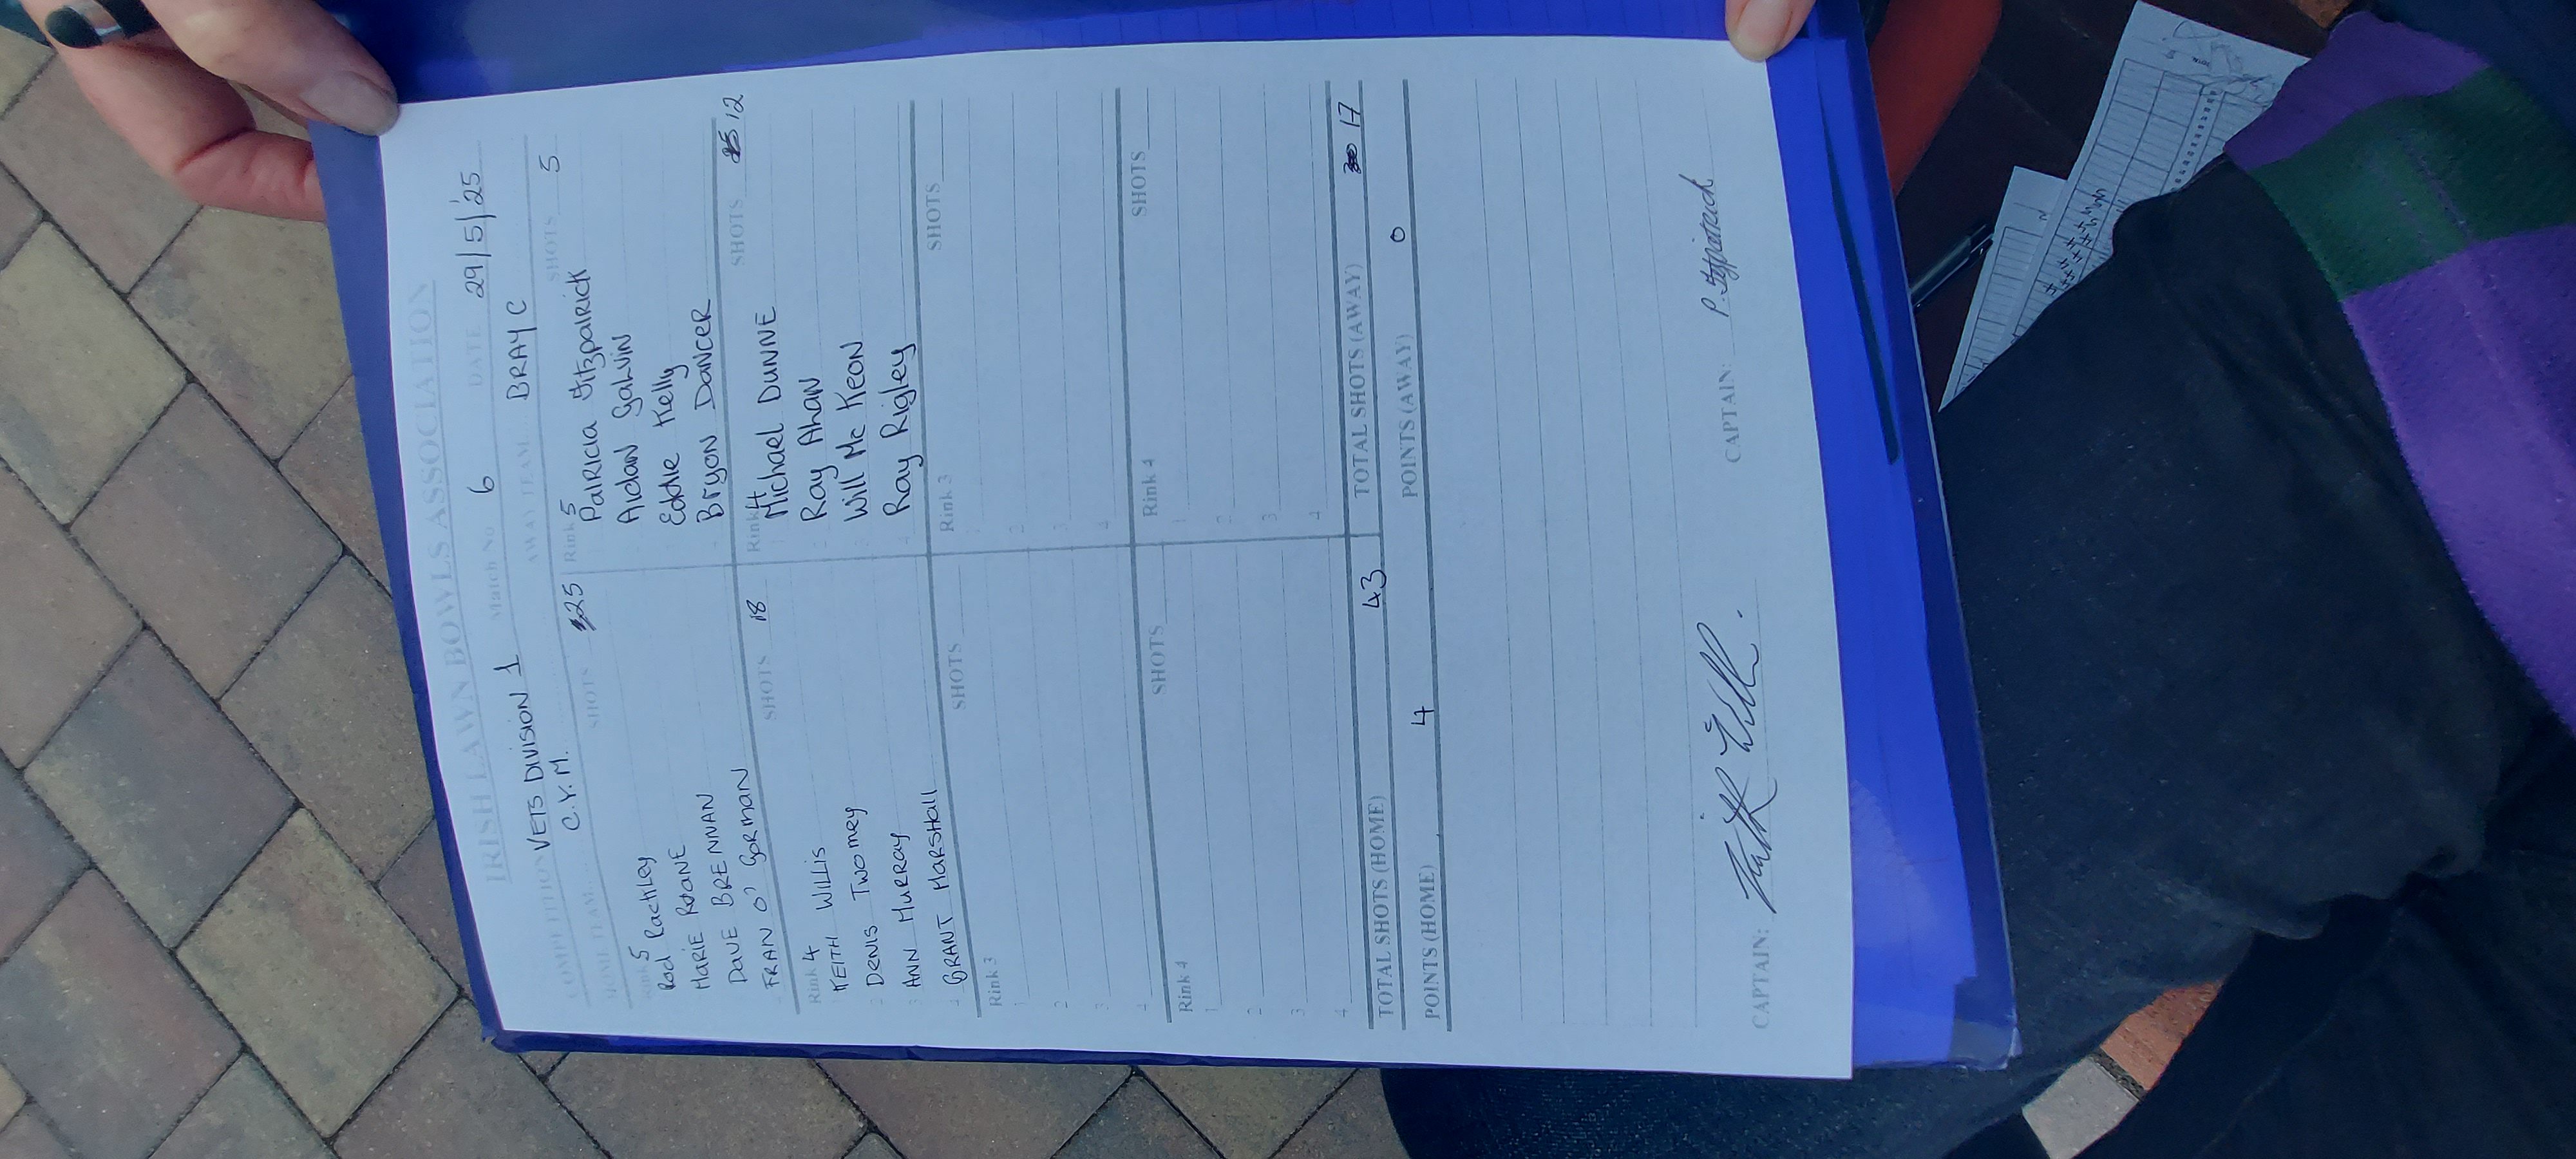 IRISH LAWN BOWLS ASSOCIATION
COMPETITION VETS DIVISION 1 Match No 6 DATE 29/5/25
HOME TEAM C.Y.M. AWAY TEAM BRAY C
SHOTS 25 SHOTS 5
Rink 5 Rink 5
Rod Rachley Patricia Fitzpatrick
MARIE ROANE Aidan Galvin
DAVE BRENNAN Eddie Kelly
FRAN O' GORMAN Bryon DANCER
SHOTS 18 SHOTS 12
Rink 4 Rink 4
KEITH WILLIS Michael DUNNE
DENIS Twomey Ray Ahan
ANN MURRAY Will Mc Keon
GRANT MARSHALL Ray Rigley
SHOTS SHOTS
Rink 3 Rink 3
1 1
2 2
3 3
4 4
SHOTS SHOTS
Rink 4 Rink 4
1 1
2 2
3 3
4 4
TOTAL SHOTS (HOME) 43 TOTAL SHOTS (AWAY) 17
POINTS (HOME) 4 POINTS (AWAY) 0
CAPTAIN: CAPTAIN: P. Fitzpatrick